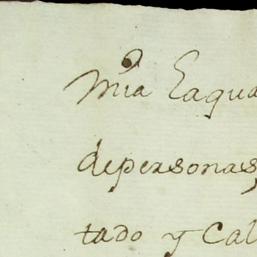 mia Laqua
depersonas,
tado y Cal